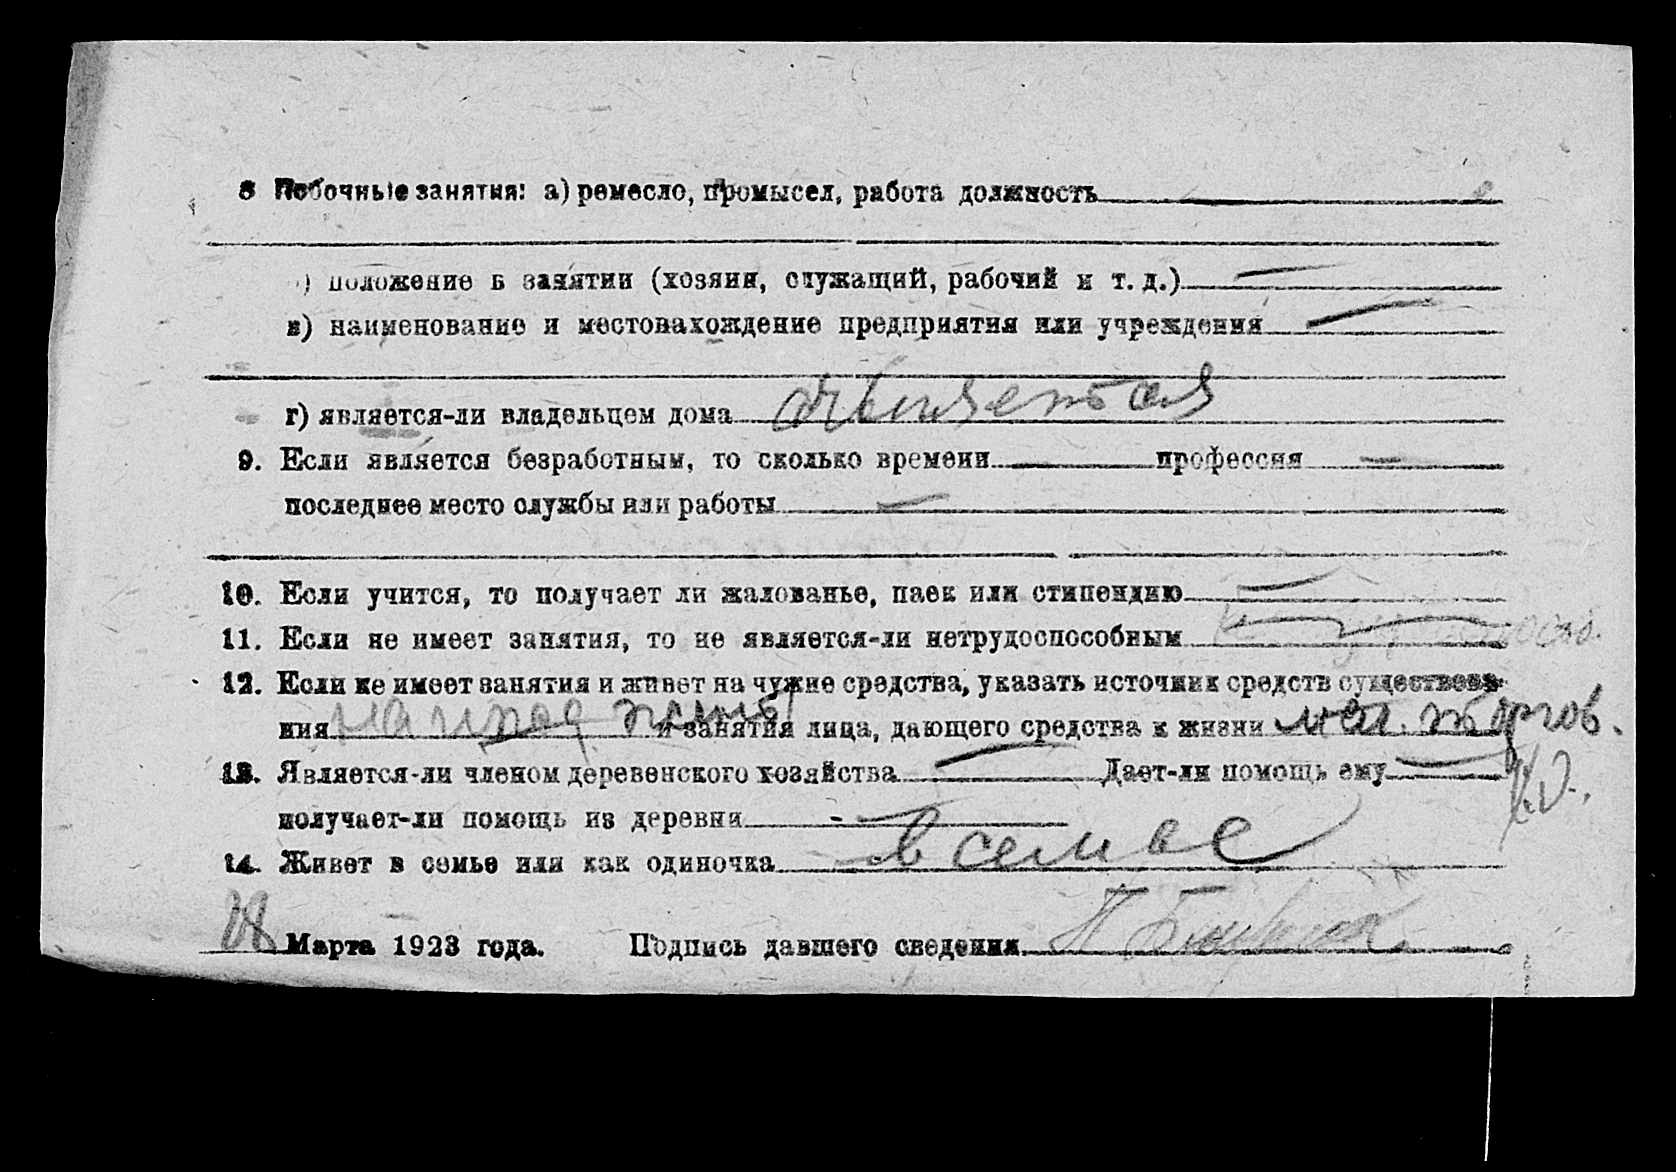 8 Побочные занятия: а) ремесло, промысел, работа должность
) положение в занятии (хозяин, служащий, рабочий и т. д.)
в) наименование и местонахождение предприятия или учреждения
г) является-ли владельцем дома является
9. Если является безработным, то сколько времени профессия
последнее место службы или работы
10. Если учится, то получает ли жалованье, паек или стипендию
11. Если не имеет занятия, то не является-ли нетрудоспособным
12. Если не имеет занятия и живет на чужие средства, указать источник средств существова-
ния на и занятия лица, дающего средства к жизни мел. торгов.
13. Является-ли членом деревенского хозяйства Дает-ли помощь ему
получает-ли помощь из деревни
14. Живет в семье или как одиночка в семье
28 Марта 1923 года. Подпись давшего сведения